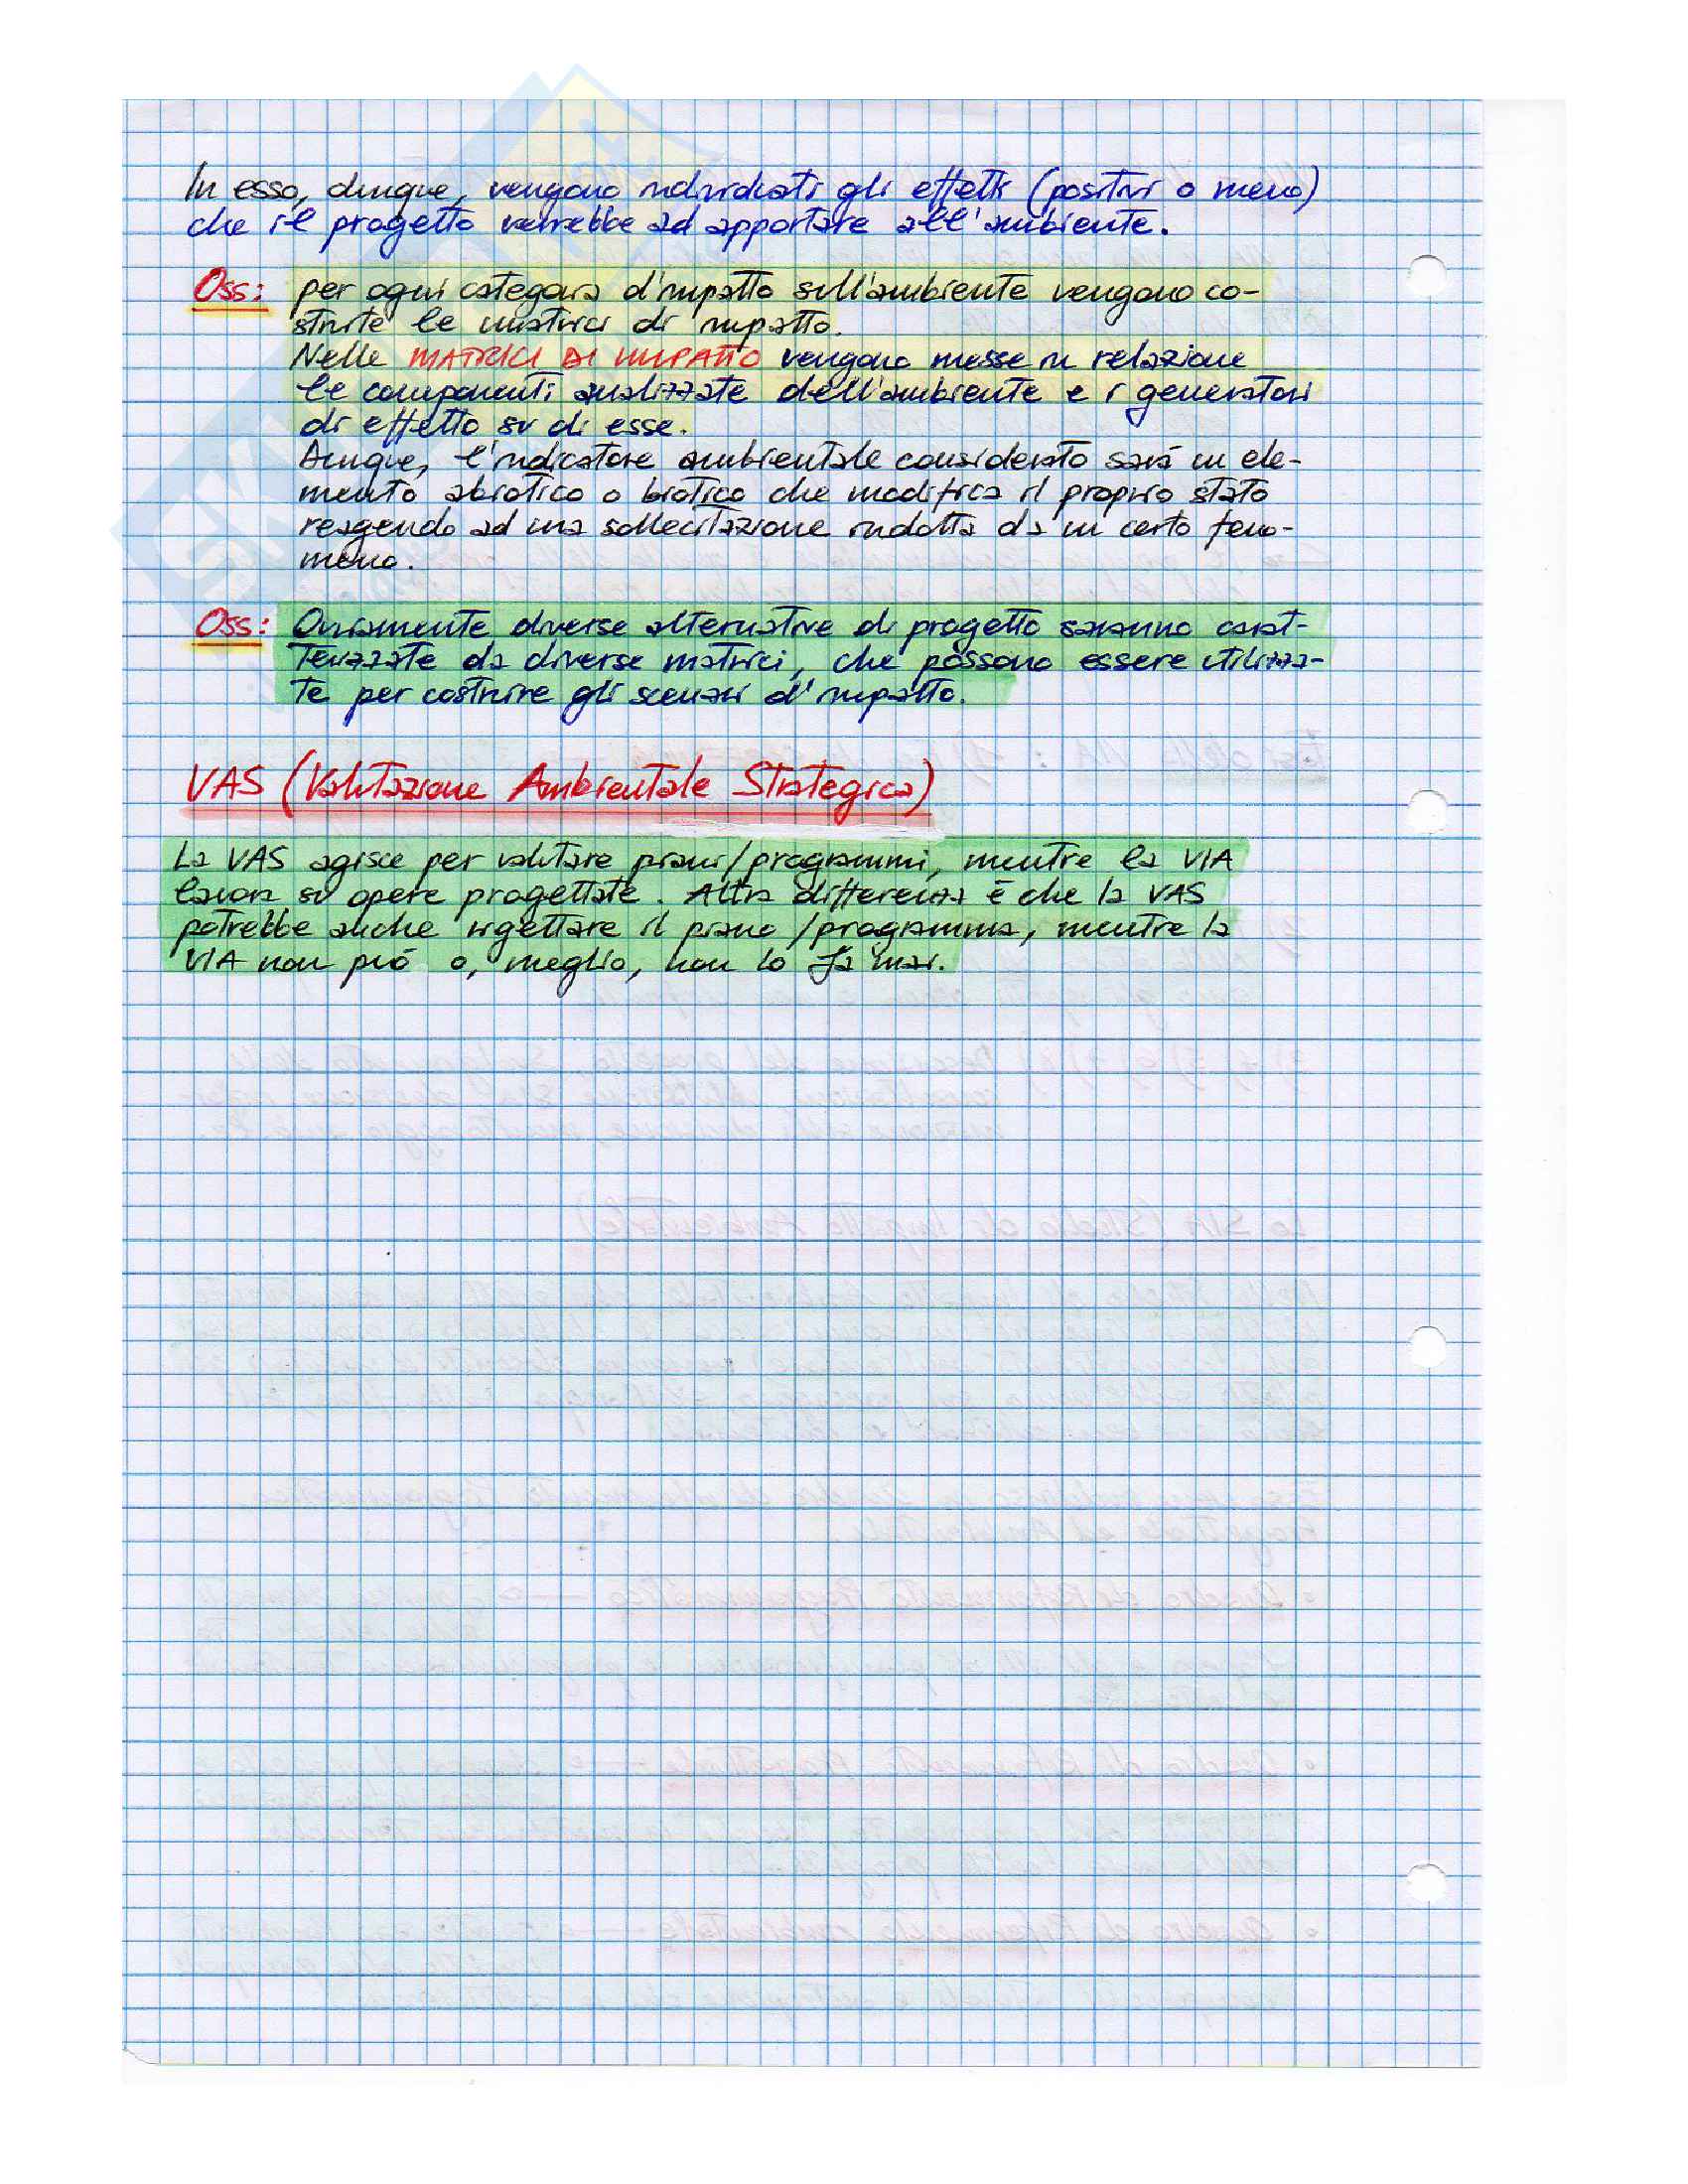 In esso, dunque, vengono individuati gli effetti (positivi o meno)
che il progetto verrebbe ad apportare all'ambiente.
Oss: per ogni categoria d'impatto sull'ambiente vengono co-
struite le matrici di impatto.
Nelle MATRICI DI IMPATTO vengono messe in relazione
le componenti analizzate dell'ambiente e i generatori
di effetto su di esse.
Dunque, l'indicatore ambientale considerato sarà un ele-
mento abiotico o biotico che modifica il proprio stato
reagendo ad una sollecitazione indotta da un certo feno-
meno.
Oss: Ovviamente diverse alternative di progetto saranno carat-
terizzate da diverse matrici, che possono essere utilizza-
te per costruire gli scenari d'impatto.
VAS (Valutazione Ambientale Strategica)
La VAS agisce per valutare piani/programmi, mentre la VIA
lavora su opere progettate. Altra differenza è che la VAS
potrebbe anche rigettare il piano/programma, mentre la
VIA non può o, meglio, non lo fa mai.